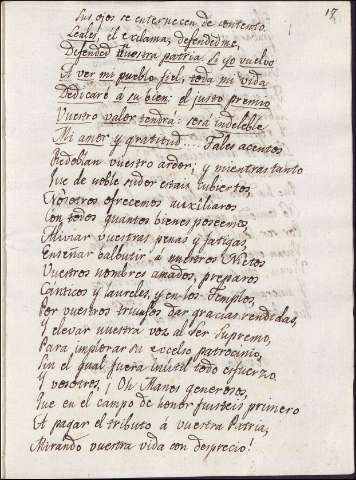 17.
Sus ojos se enternecen de contento.
Leales, él exclama, defendedme,
Defended vuestra patria. Si yo vuelvo
A ver mi pueblo fiel, toda mi vida
Dedicaré á su bien: el justo premio
Vuestro valor tendrá: será indeleble
Mi amor y gratitud.... Tales acentos
Redoblan vuestro ardor; y mientras tanto
Que de noble sudor estais cubiertos,
Nosotros ofrecemos auxiliaros
Con todos quantos bienes poseemos,
Aliviar vuestras penas y fatigas,
Enseñar balbutir á nuestros Nietos
Vuestros nombres amados, preparos
Cánticos y laureles, y en los Templos,
Por vuestros triunfos dar gracias rendidas,
Y elevar nuestra voz al Ser Supremo,
Para implorar su excelso patrocinio,
Sin el qual fuera inútil todo esfuerzo.
Y vosotros, ¡Oh Manes generosos,
Que en el campo de honor fuisteis primero
A pagar el tributo á vuestra Patria,
Mirando vuestra vida con desprecio!